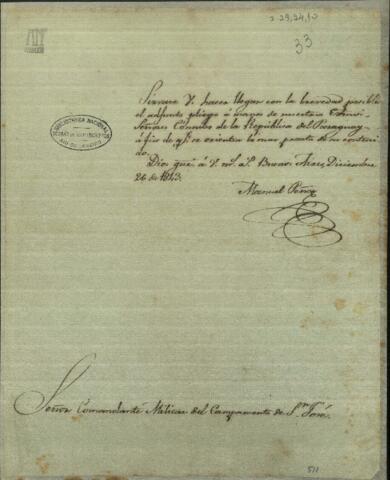 2 29,24,10
33
BIBLIOTHECA NACIONAL
RIO DE JANEIRO
Sirvase V. hacer llegar con la brevedad posible
el adjunto pliego á manos de nuestros
Señores Cónsules de la República del Paraguay
á fin de q.e se orienten lo mas pronto de su conteni-
do.
Dios gue. á V. m.s a.s Buenos Aires, Diciembre
26 de 1843.
Manuel Peña
Señor Comandante Militar del Campamento de S.n José.
511